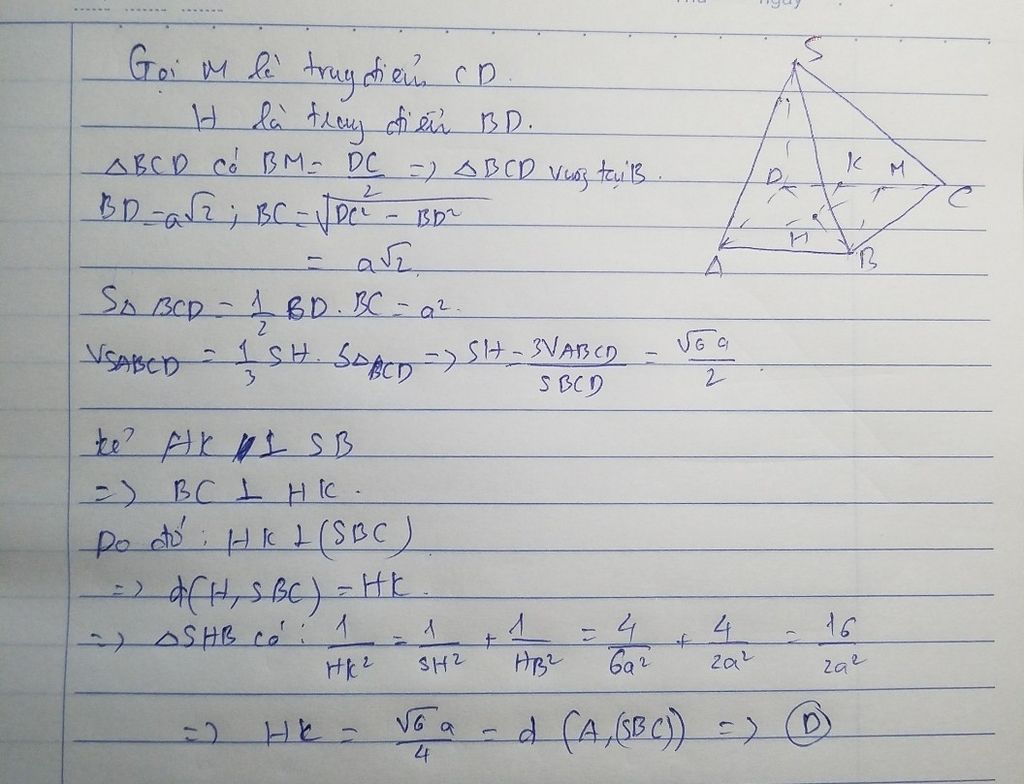 Gọi M là trung điểm CD.
H là trung điểm BD.
△BCD có BM = DC/2 => △BCD vuông tại B.
BD = a√2 ; BC = √(DC² - BD²)
= a√2.
S△BCD = 1/2 BD . BC = a².
VSABCD = 1/3 SH . S△BCD => SH = 3VABCD/SBCD = √6 a/2
kẻ HK ⊥ SB
=> BC ⊥ HK.
Do đó : HK ⊥ (SBC)
=> d(H, SBC) = HK.
=> △SHB có : 1/HK² = 1/SH² + 1/HB² = 4/6a² + 4/2a² = 16/2a²
=> HK = √6 a/4 = d (A,(SBC)) => D
S
D
K
M
C
H
A
B